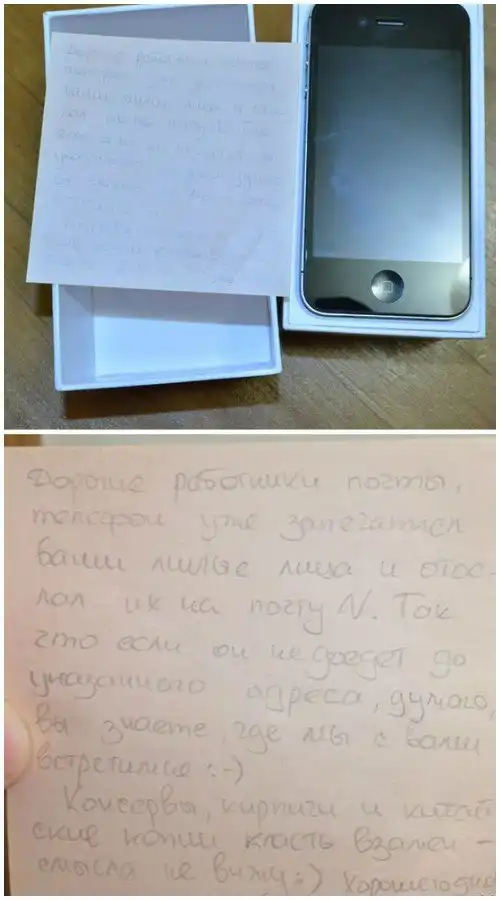 Дорогие работники почты,
телефон уже запечатлел
ваши милые лица и отос-
лал их на почту N. Так
что если он не доедет до
указанного адреса, думаю,
вы знаете, где мы с вами
встретимся :-)
Консервы, кирпичи и китай
ские копии класть взамен -
смысла не вижу :) Хорошего дня